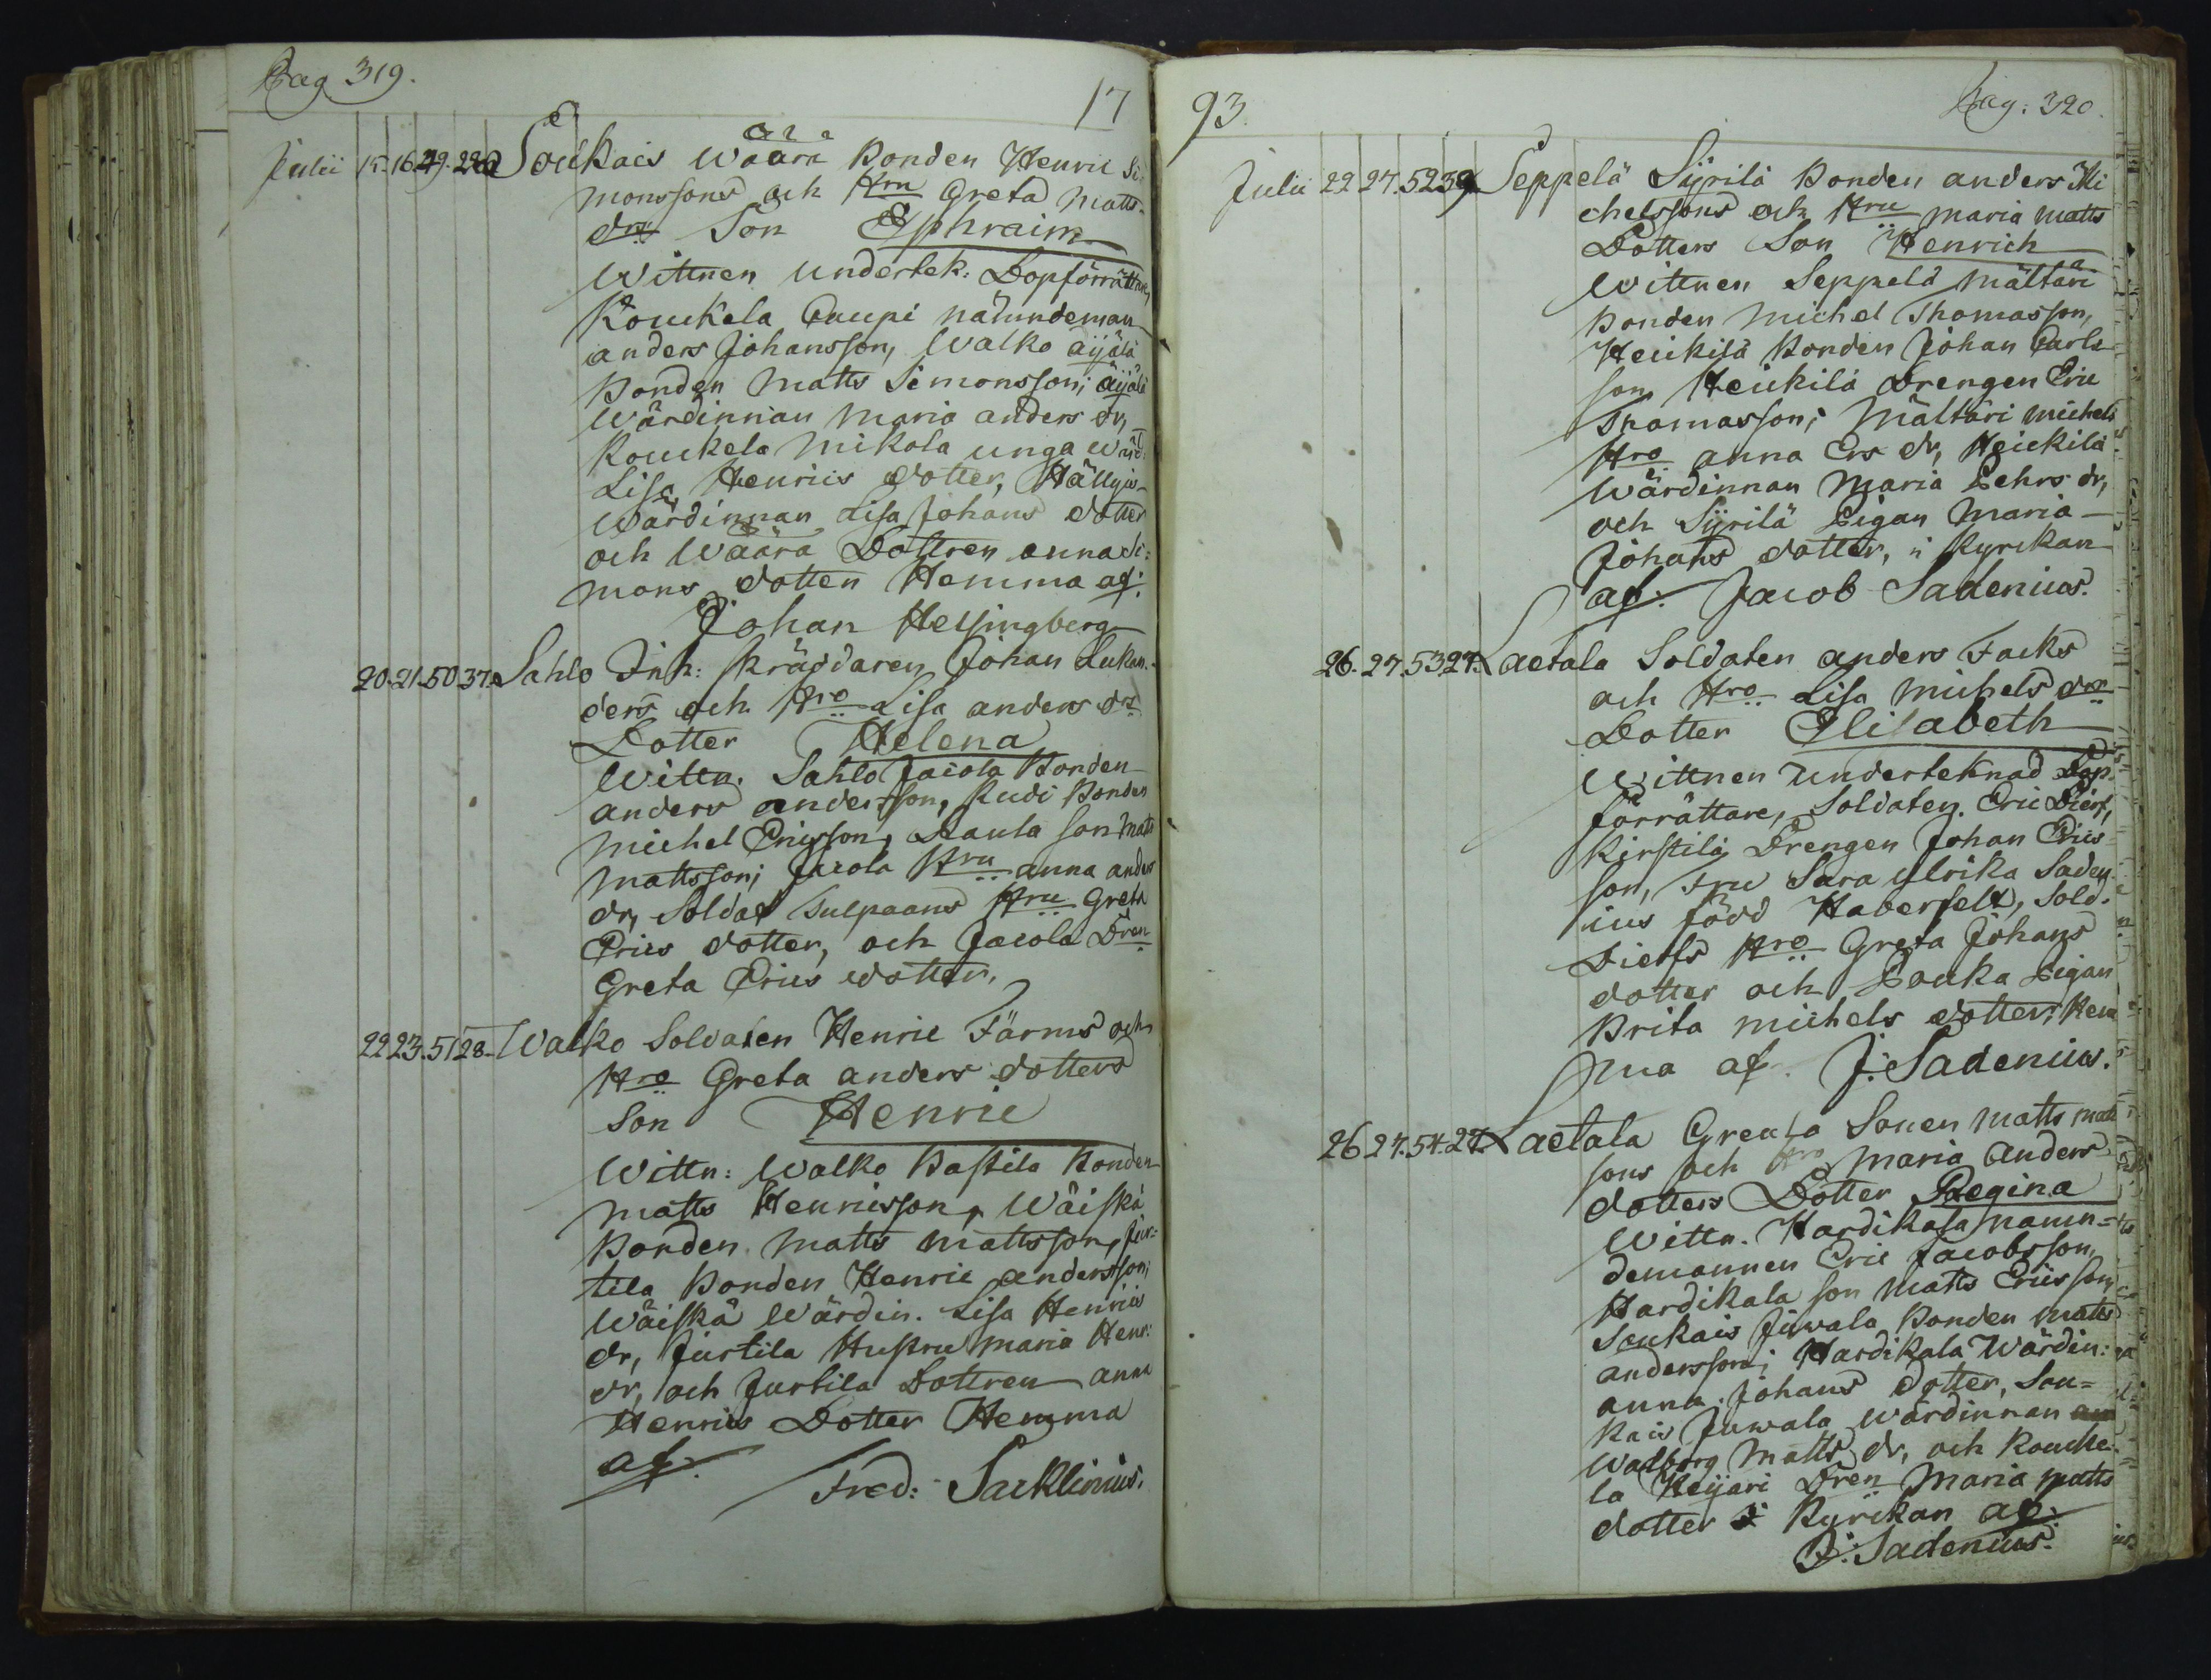 Pag 319.
17
Julii 15. 16. 49. 28 Soukais Waara Bonden Henric Si
monssons och Hru Greta Matts
drs Son Ephraim
Wittnen undertek: Dopförrättare,
Kouckela Caupi nämndeman
anders Johansson, Walko äijälä
Bonden Matts Simonsson; äijälä
Wärdinnan Maria anders dr,
Kouckela Mikola unga Wärd:
Lisa Henrics dotter, Hällyis
Wärdinnan Lisa Johans dotter
och Waara Dottren anna Si:
mons dotter Hemma af:
Johan Helsingberg
20. 21. 50 37. Sahlo Inh: Skräddaren Johan Lukan
ders och Hro Lisa anders drs
Dotter Helena
Wittn. Sahlo Jacola Bonden
anders andersson, Rudi Bonden
Michel Ericsson, Rauta son Matts
Mattsson; Jacola Hru anna anders
dr, Soldat Tulpaans Hru Greta
Erics dotter, och Jacola Dren
Greta Erics dotter.
22 23. 51 28 Walko Soldaten Henric Färms och
Hro Greta anders dotters
Son Henric
Wittn: Walko Pastila Bonden
Matts Henricsson, Wäiskä
Bonden Matts Mattsson, Jur:
tila Bonden Henric andersson;
Wäiskä Wärdin. Lisa Henrics
dr, Jurtila Hustru Maria Henr:
dr, och Jurtila Dottren anna
Henrics Dotter Hemma
af.
Fred: Sacklinius.
93.
Pag: 320.
Julii 22 27. 52 39 Seppelä Syrilä Bonden anders Mi
chelssons och Hru Maria Matts
Dotters Son Henrich
Wittnen Seppelä Mältäri
Bonden Michel Thomasson,
Heickilä Bonden Johan Carls
son, Heickilä Drengen Eric
Thomasson; Mältäri Michels
Hro anna Ers dr, Heickilä
Wärdinnan Maria Pehrs dr,
och Syrilä Pigan Maria
Johans dotter, i Kyrckan
af. Jacob Sadenius.
26. 27. 53 27. Laetala Soldaten anders Facks
och Hro Lisa Michels drs
Dotter Elisabeth
Wittnen Underteknad Dop
förrättare, Soldaten Eric Diert,
Kirstilä Drengen Johan Erics
son, Fru Sara Ulrika Saden
ius född Haberfelt, Sold.
Dierts Hro Greta Johans
dotter och Pouka Pigan
Brita Michels dotter; Hem
ma af. J: Sadenius.
26 27. 54. 27 Laetala Greula Sonen Matts Matts
sons och Hro Maria Anders
dotters Dotter Regina
Wittn. Hardikala Nämn=
demannen Eric Jacobsson,
Hardikala son Matts Ericsson,
Soukais Juwala Bonden Matts
andersson; Hardikala Wärdin:
anna Johans dotter, Sou=
kais Juwala Wärdinnan
Walborg Matts dr, och Koucke
la Keijari Dren Maria Matts
dotter i Kyrckan af:
J: Sadenius.